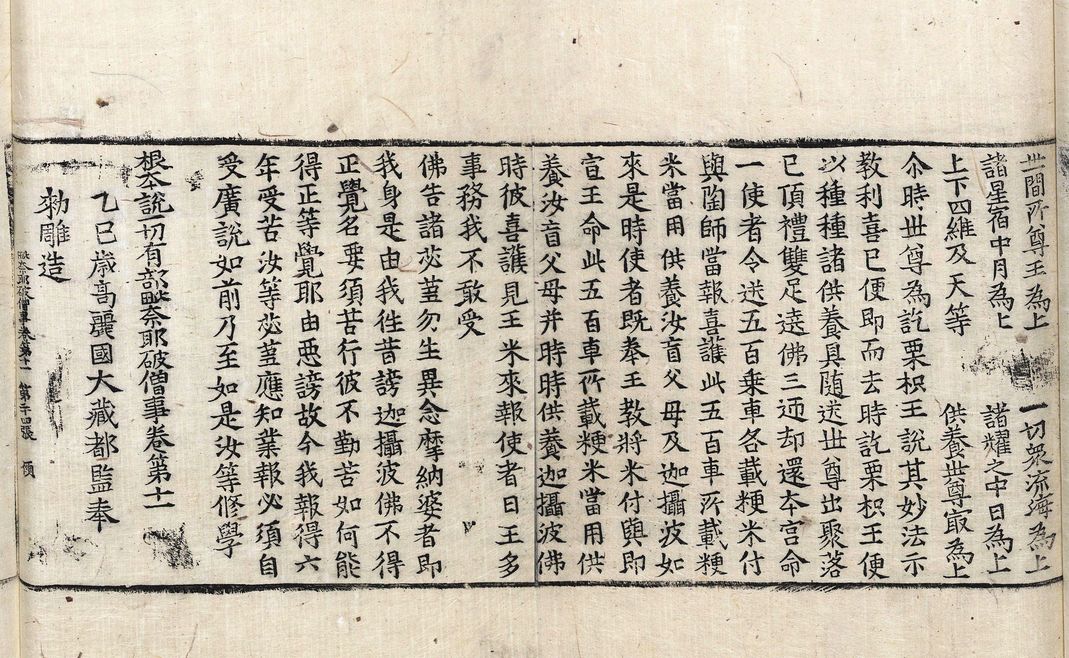 世間所尊王為上　一切衆流海為上
諸星宿中月為上　諸耀之中日為上
上下四維及天等　供養世尊㝡為上
尒時世尊為訖栗枳王說其妙法示
教利喜已便即而去時訖栗枳王便
以種種諸供養具隨送世尊出聚落
已頂禮雙足遶佛三迊却還本宮命
一使者令送五百乗車各載粳米付
與陶師當報喜護此五百車所載粳
米當用供養汝盲父母及迦攝波如
來是時使者旣奉王教將米付與即
宣王命此五百車所載粳米當用供
養汝盲父母并時時供養迦攝波佛
時彼喜護見王米來報使者曰王多
事務我不敢受
佛告諸苾蒭勿生異念摩納婆者即
我身是由我徃昔謗迦攝波佛不得
正覺名要須苦行彼不勤苦如何能
得正等覺耶由惡謗故今我報得六
年受苦汝等苾蒭應知業報必須自
受廣說如前乃至如是汝等修學
根本說一切有部毗奈耶破僧事卷第十一
乙巳歳高麗國大藏都監奉
勑雕造
毗奈耶破僧事卷第十一　第二十四張